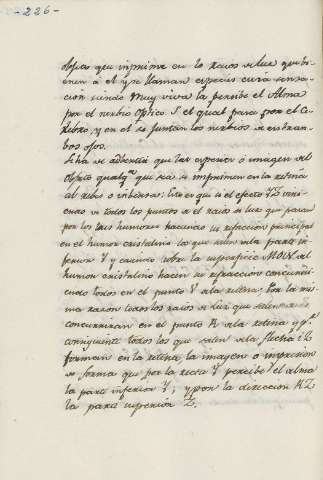 - 226 -
objeto que imprime en los raios de luz que bi-
enen á el y se llaman especies cuia sensa-
ción siendo muy viva la percibe el Alma
por el nerbio optico S el qual pasa por el Ce-
rebro, y en el se juntan los nerbios de entram-
bos ojos.
Se ha de advertir que las especies ó imagen del
objeto qualqª que sea se imprimen en la retina
al rebes o inbersa: Esto es que si el efecto YZ vini-
endo de todos los puntos de el raios de luz que pasan
por los tres humores haciendo su refraccion principal
en el humor cristalino los que salen de la parte in-
ferior Y y caiendo sobre la superficie MOIX del
humor cristalino hacen su refraccion concurri-
endo todos en el punto V de la retina. Por la mis-
ma razon todos los raios de luz que salen de
concurriran en el punto K de la retina y pr
consiguiente todos los que salen de la flecha YZ
forman en la retina la imagen o impresion
de forma que por la recta Y percibe el alma
la parte inferior Y; y por la direccion KZ
la parte superior Z.